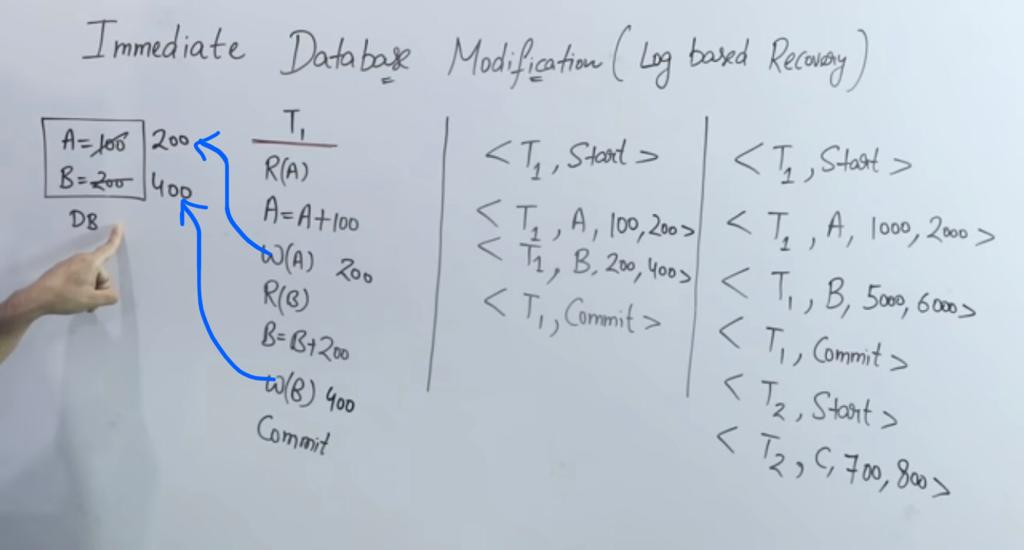 Immediate Database Modification (Log based Recovery)
A=100 200
B=200 400
DB
T1
R(A)
A=A+100
W(A) 200
R(B)
B=B+200
W(B) 400
Commit
<T1, Start>
<T1, A, 100, 200>
<T1, B, 200, 400>
<T1, Commit>
<T1, Start>
<T1, A, 1000, 2000>
<T1, B, 5000, 6000>
<T1, Commit>
<T2, Start>
<T2, C, 700, 800>